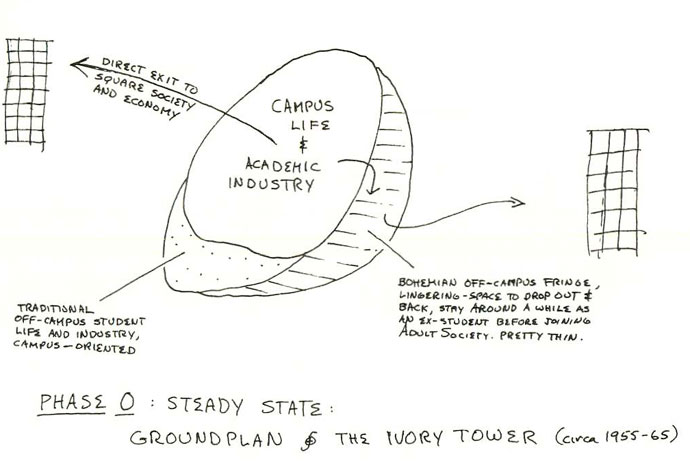 DIRECT EXIT TO
SQUARE SOCIETY
AND ECONOMY
CAMPUS
LIFE
&
ACADEMIC
INDUSTRY
TRADITIONAL
OFF-CAMPUS STUDENT
LIFE AND INDUSTRY,
CAMPUS-ORIENTED
BOHEMIAN OFF-CAMPUS FRINGE,
LINGERING-SPACE TO DROP OUT &
BACK, STAY AROUND A WHILE AS
AN EX-STUDENT BEFORE JOINING
ADULT SOCIETY. PRETTY THIN.
PHASE 0 : STEADY STATE:
GROUNDPLAN OF THE IVORY TOWER (circa 1955-65)